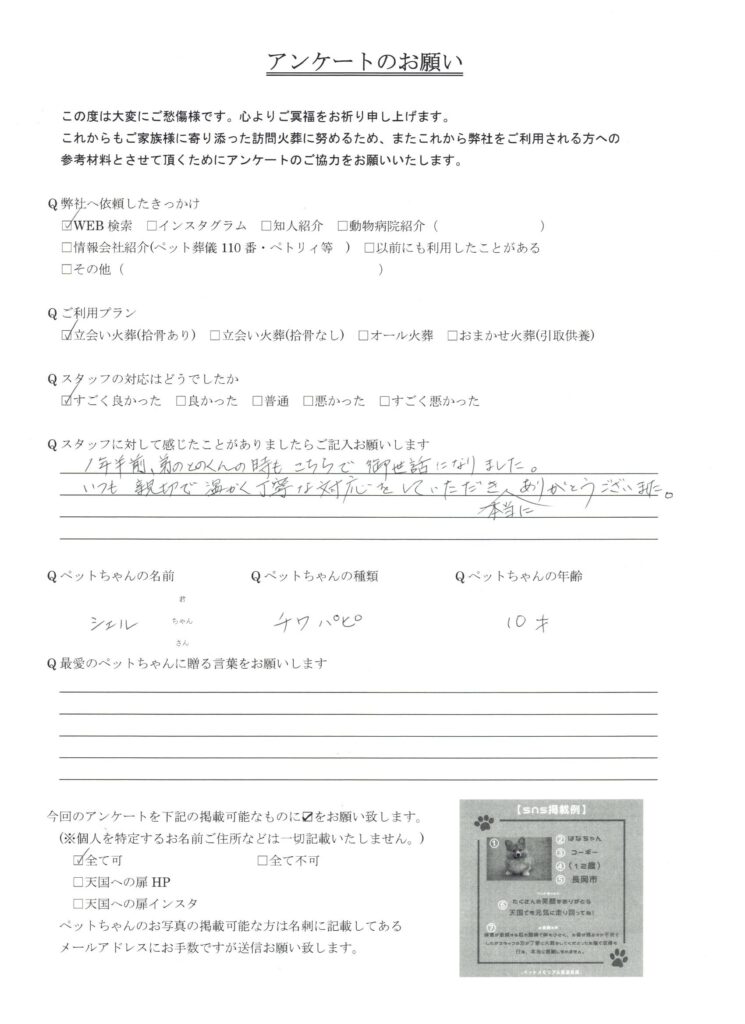 アンケートのお願い
この度は大変にご愁傷様です。心よりご冥福をお祈り申し上げます。
これからもご家族様に寄り添った訪問火葬に努めるため、またこれから弊社をご利用される方への
参考材料とさせて頂くためにアンケートのご協力をお願いいたします。
Q 弊社へ依頼したきっかけ
☑WEB 検索 □インスタグラム □知人紹介 □動物病院紹介（ ）
□情報会社紹介(ペット葬儀 110 番・ペトリィ等 ) □以前にも利用したことがある
□その他（ ）
Q ご利用プラン
☑立会い火葬(拾骨あり) □立会い火葬(拾骨なし) □オール火葬 □おまかせ火葬(引取供養)
Q スタッフの対応はどうでしたか
☑すごく良かった □良かった □普通 □悪かった □すごく悪かった
Q スタッフに対して感じたことがありましたらご記入お願いします
1年半前、弟のとのくんの時も こちらで 御世話になりました。
いつも 親切で 温かく 丁寧な対応をしていただき、本当に ありがとうございました。
Q ペットちゃんの名前 Q ペットちゃんの種類 Q ペットちゃんの年齢
君
シェル ちゃん チワパピ 10才
さん
Q 最愛のペットちゃんに贈る言葉をお願いします
今回のアンケートを下記の掲載可能なものに☑をお願い致します。
(※個人を特定するお名前ご住所などは一切記載いたしません。)
☑全て可 □全て不可
□天国への扉 HP
□天国への扉インスタ
ペットちゃんのお写真の掲載可能な方は名刺に記載してある
メールアドレスにお手数ですが送信お願い致します。
【sns掲載例】
① ② はなちゃん
③ コーギー
④ （12歳）
⑤ 長岡市
⑥ たくさんの笑顔をありがとう
天国でも元気に走り回ってね！
⑦